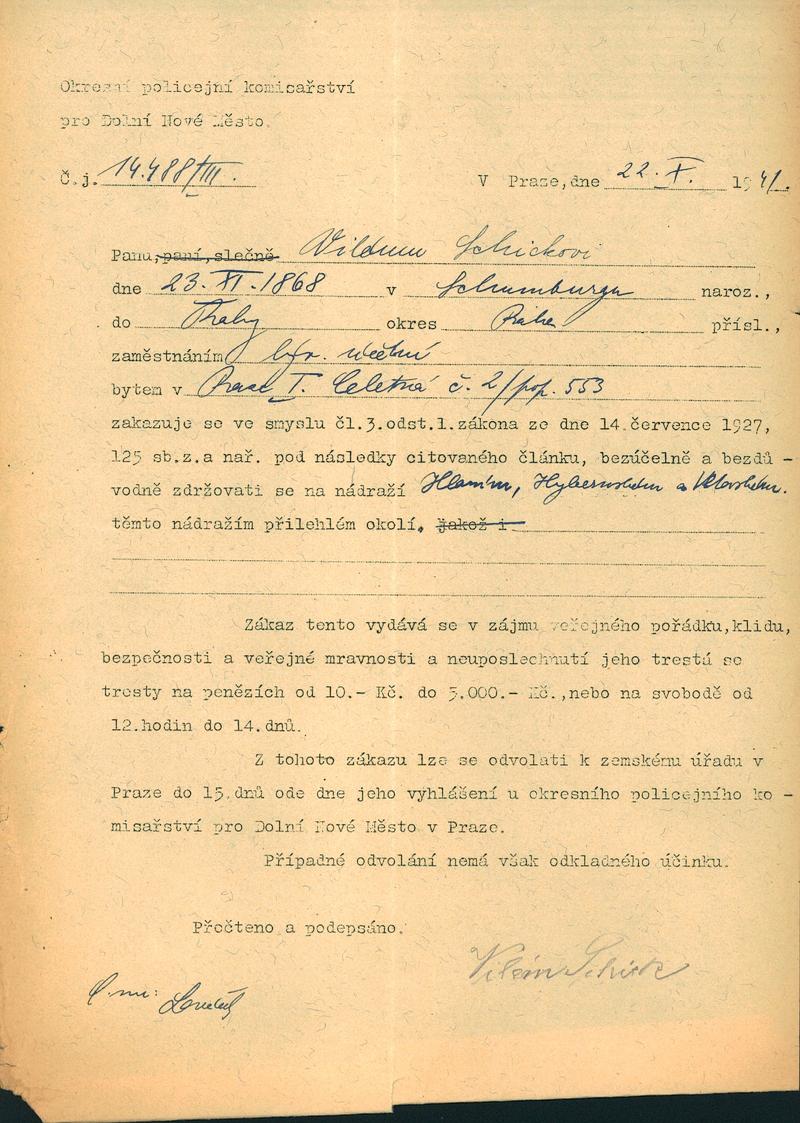 Okresní policejní komisařství
pro Dolní Nové Město.
Č.j. 14.488/III. V Praze, dne 22. X. 1941.
Panu, paní, slečně Vilému Schickovi
dne 23. XI. 1868 v Schumburgu naroz.,
do Prahy okres Praha přísl.,
zaměstnáním býv. účetní
bytem v Praze I. Celetná č. 2/pop. 553
zakazuje se ve smyslu čl.3.odst.1.zákona ze dne 14.července 1927,
125 sb.z.a nař. pod následky citovaného článku, bezúčelně a bezdů -
vodně zdržovati se na nádraží Hlavním, Hybernském a
těmto nádražím přilehlém okolí, jakož i
Zákaz tento vydává se v zájmu veřejného pořádku,klidu,
bezpečnosti a veřejné mravnosti a neuposlechnutí jeho trestá se
tresty na penězích od 10.- Kč. do 5.000.- Kč.,nebo na svobodě od
12.hodin do 14.dnů.
Z tohoto zákazu lze se odvolati k zemskému úřadu v
Praze do 15.dnů ode dne jeho vyhlášení u okresního policejního ko -
misařství pro Dolní Nové Město v Praze.
Případné odvolání nemá však odkladného účinku.
Přečteno a podepsáno.
Vilém Schick